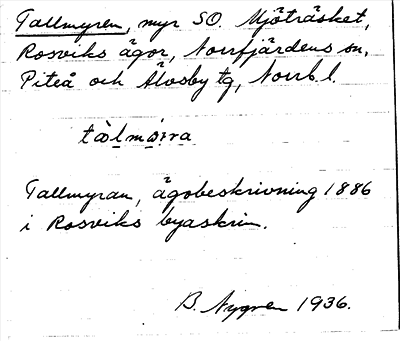 Tallmyren, myr SO. Mjöträsket,
Rosviks ägor, Norrfjärdens sn,
Piteå och Älvsby tg, Norrb. l.
Tallmyran, ägobeskrivning 1886
i Rosviks byaskrin.
B. Nygren 1936.